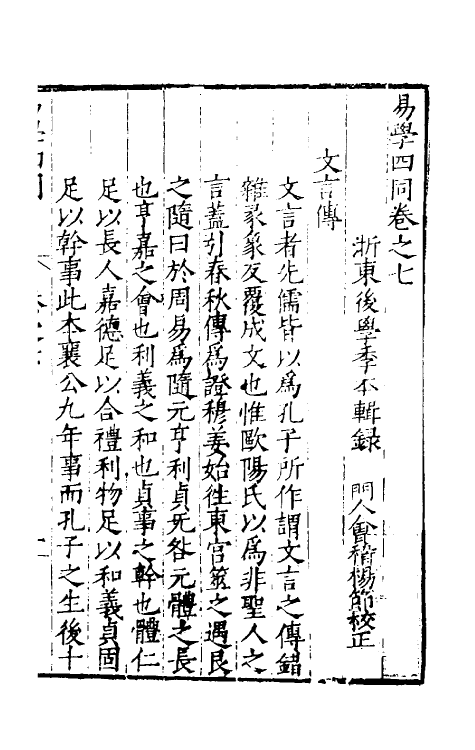 易學四同卷之七
浙東後學季本輯錄　門人會稽楊節校正
文言傳
文言者先儒皆以爲孔子所作謂文言之傳錯
雜彖象反覆成文也惟歐陽氏以爲非聖人之
言葢引春秋傳爲證穆姜始徃東宫筮之遇艮
之隨曰於周易爲隨元亨利貞无咎元體之長
也亨嘉之會也利義之和也貞事之幹也體仁
足以長人嘉德足以合禮利物足以和義貞固
足以幹事此本襄公九年事而孔子之生後十